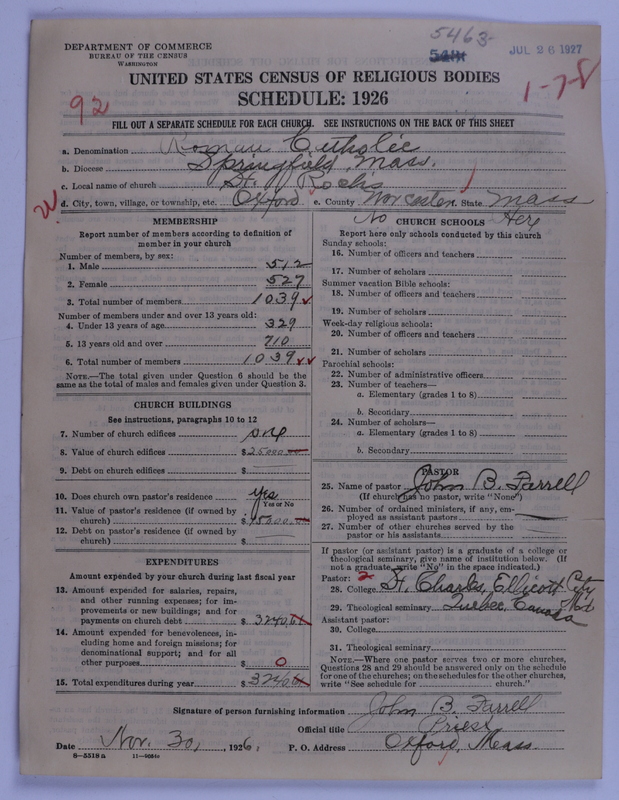 DEPARTMENT OF COMMERCE
BUREAU OF THE CENSUS
WASHINGTON
5463
JUL 26 1927
1-7-8
92
UNITED STATES CENSUS OF RELIGIOUS BODIES
SCHEDULE: 1926
FILL OUT A SEPARATE SCHEDULE FOR EACH CHURCH. SEE INSTRUCTIONS ON THE BACK OF THIS SHEET
a. Denomination Roman Catholic
b. Diocese Springfield, Mass.
c. Local name of church St. Roch's
d. City, town, village, or township, etc. Oxford e. County Worcester State Mass
MEMBERSHIP
Report number of members according to definition of member in your church
Number of members, by sex:
1. Male 512
2. Female 527
3. Total number of members 1039
Number of members under and over 13 years old:
4. Under 13 years of age 329
5. 13 years old and over 710
6. Total number of members 1039
NOTE.—The total given under Question 6 should be the same as the total of males and females given under Question 3.
CHURCH BUILDINGS
See instructions, paragraphs 10 to 12
7. Number of church edifices one
8. Value of church edifices $25000.00
9. Debt on church edifices $
10. Does church own pastor's residence yes
Yes or No
11. Value of pastor's residence (if owned by church) $
12. Debt on pastor's residence (if owned by church) $
EXPENDITURES
Amount expended by your church during last fiscal year
13. Amount expended for salaries, repairs, and other running expenses; for improvements or new buildings; and for payments on church debt $ 3240.
14. Amount expended for benevolences, including home and foreign missions; for denominational support; and for all other purposes $ 0
15. Total expenditures during year $ 3240.
No CHURCH SCHOOLS Here
Report here only schools conducted by this church
Sunday schools:
16. Number of officers and teachers
17. Number of scholars
Summer vacation Bible schools:
18. Number of officers and teachers
19. Number of scholars
Week-day religious schools:
20. Number of officers and teachers
21. Number of scholars
Parochial schools:
22. Number of administrative officers
23. Number of teachers—
a. Elementary (grades 1 to 8)
b. Secondary
24. Number of scholars—
a. Elementary (grades 1 to 8)
b. Secondary
PASTOR
25. Name of pastor John B. Farrell
(If church has no pastor, write "None")
26. Number of ordained ministers, if any, employed as assistant pastors
27. Number of other churches served by the pastor or his assistants
If pastor (or assistant pastor) is a graduate of a college or theological seminary, give name of institution below. (If not a graduate, write "No" in the space indicated.)
Pastor: 2
28. College St. Charles, Ellicott City Md
29. Theological seminary Quebec, Canada
Assistant pastor:
30. College
31. Theological seminary
NOTE.—Where one pastor serves two or more churches, Questions 28 and 29 should be answered only on the schedule for one of the churches; on the schedules for the other churches, write "See schedule for church."
Signature of person furnishing information John B. Farrell
Official title Priest
Date Nov. 30, 1926. P. O. Address Oxford, Mass.
8-5518 a